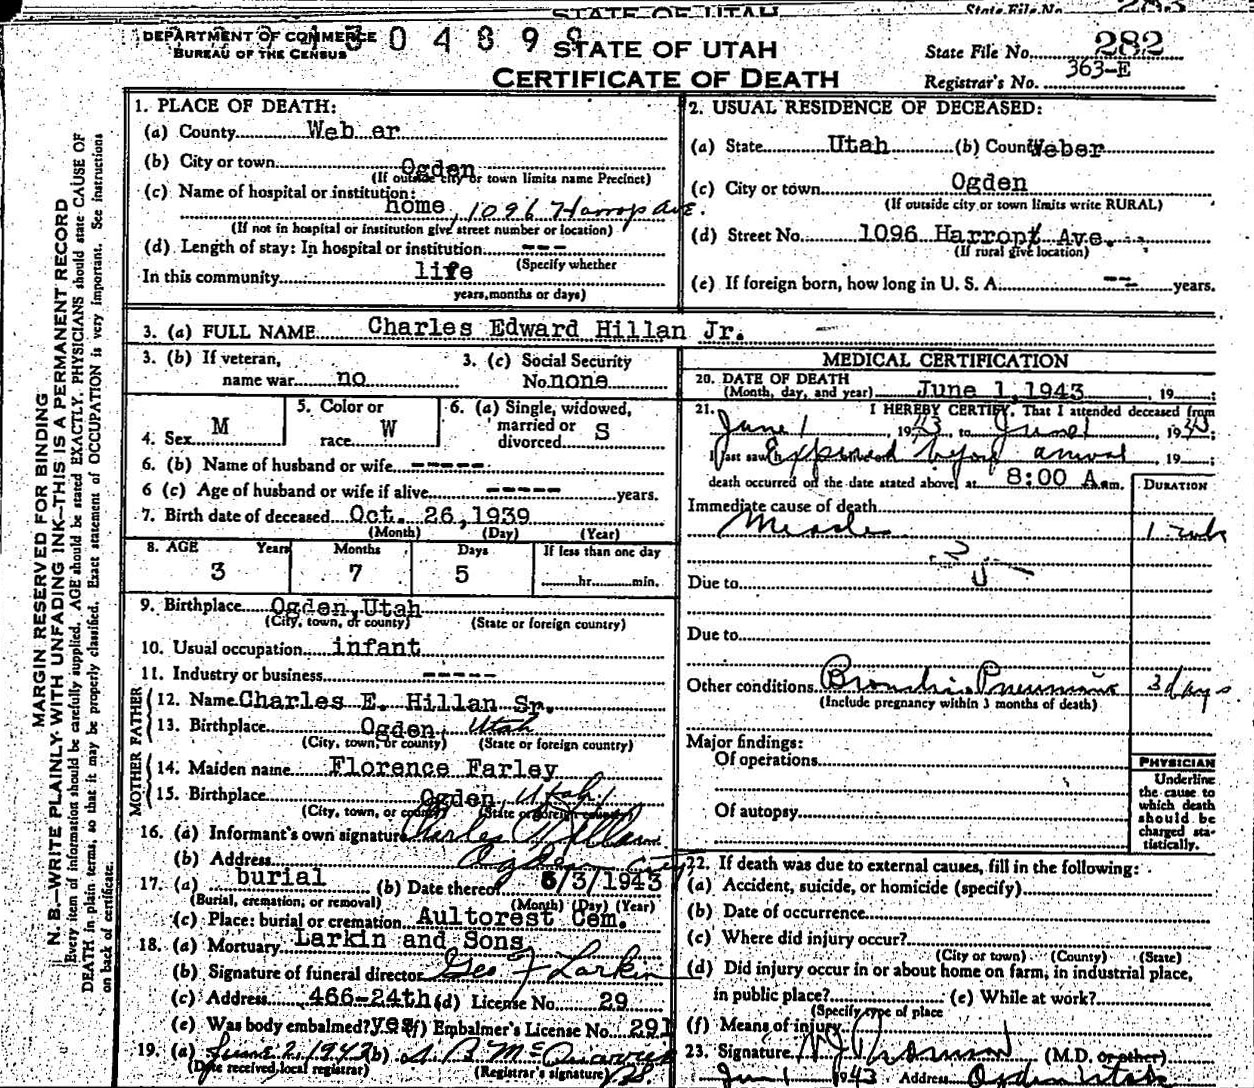 STATE OF UTAH
State File No.
DEPARTMENT OF COMMERCE
BUREAU OF THE CENSUS
STATE OF UTAH
CERTIFICATE OF DEATH
State File No. 282
Registrar's No. 363-E
MARGIN RESERVED FOR BINDING
N. B.—WRITE PLAINLY WITH UNFADING INK—THIS IS A PERMANENT RECORD
Every item of information should be carefully supplied. AGE should be stated EXACTLY. PHYSICIANS should state CAUSE OF
DEATH in plain terms, so that it may be properly classified. Exact statement of OCCUPATION is very important. See instructions
on back of certificate.
1. PLACE OF DEATH:
(a) County Weber
(b) City or town Ogden
(If outside city or town limits name Precinct)
(c) Name of hospital or institution:
home, 1096 Harrop Ave.
(If not in hospital or institution give street number or location)
(d) Length of stay: In hospital or institution ---
(Specify whether
In this community life
years, months or days)
2. USUAL RESIDENCE OF DECEASED:
(a) State Utah (b) County Weber
(c) City or town Ogden
(If outside city or town limits write RURAL)
(d) Street No. 1096 Harrop Ave.
(If rural give location)
(e) If foreign born, how long in U. S. A. -- years.
3. (a) FULL NAME Charles Edward Hillan Jr.
3. (b) If veteran,
name war no
3. (c) Social Security
No. none
4. Sex M
5. Color or
race W
6. (a) Single, widowed,
married or
divorced S
6. (b) Name of husband or wife -----
6 (c) Age of husband or wife if alive ----- years.
7. Birth date of deceased Oct. 26, 1939
(Month) (Day) (Year)
8. AGE Years Months Days If less than one day
3 7 5 hr. min.
9. Birthplace Ogden, Utah
(City, town, or county) (State or foreign country)
10. Usual occupation infant
11. Industry or business -----
FATHER
12. Name Charles E. Hillan Sr.
13. Birthplace Ogden Utah
(City, town, or county) (State or foreign country)
MOTHER
14. Maiden name Florence Farley
15. Birthplace Ogden Utah
(City, town, or county) (State or foreign country)
16. (a) Informant's own signature Charles E Hillan
(b) Address Ogden City
17. (a) burial (b) Date thereof 6/3/1943
(Burial, cremation, or removal) (Month) (Day) (Year)
(c) Place: burial or cremation Aultorest Cem.
18. (a) Mortuary Larkin and Sons
(b) Signature of funeral director Geo F Larkin
(c) Address 466-24th (d) License No. 29
(e) Was body embalmed? yes (f) Embalmer's License No. 291
19. (a) June 2, 1943 (b)
(Date received local registrar) (Registrar's signature)
MEDICAL CERTIFICATION
20. DATE OF DEATH
(Month, day, and year) June 1, 1943, 19
21. I HEREBY CERTIFY, That I attended deceased from
June 1 1943, to June 1 1943;
I last saw h Expired before arrival, 19 ;
death occurred on the date stated above, at 8:00 A. m.
DURATION
Immediate cause of death
Measles 1 wk
35
Due to
Due to
Other conditions Bronchio Pneumonia 3 days
(Include pregnancy within 3 months of death)
Major findings:
Of operations
Of autopsy
PHYSICIAN
Underline
the cause to
which death
should be
charged sta-
tistically.
22. If death was due to external causes, fill in the following:
(a) Accident, suicide, or homicide (specify)
(b) Date of occurrence
(c) Where did injury occur?
(City or town) (County) (State)
(d) Did injury occur in or about home on farm, in industrial place,
in public place? (e) While at work?
(Specify type of place
(f) Means of injury
23. Signature (M.D. or other)
Jun 1 1943 Address Ogden Utah